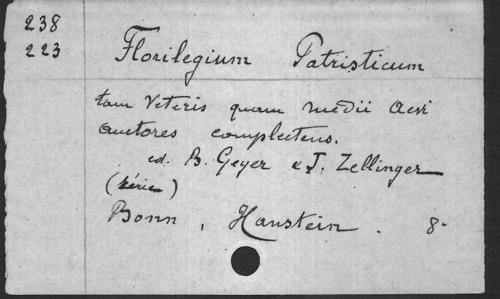 238
223
Florilegium Patristicum
tam Veteris quam medii aevi
auctores complectens.
ed. B. Geyer & J. Zellinger
(série)
Bonn, Hanstein. 8°